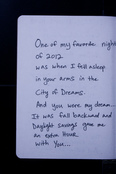 One of my favorite nights
of 2012
was when I fell asleep
in your arms in the
City of Dreams.
And you were my dream...
It was fall backward and
Daylight savings gave me
an extra hour
with You...